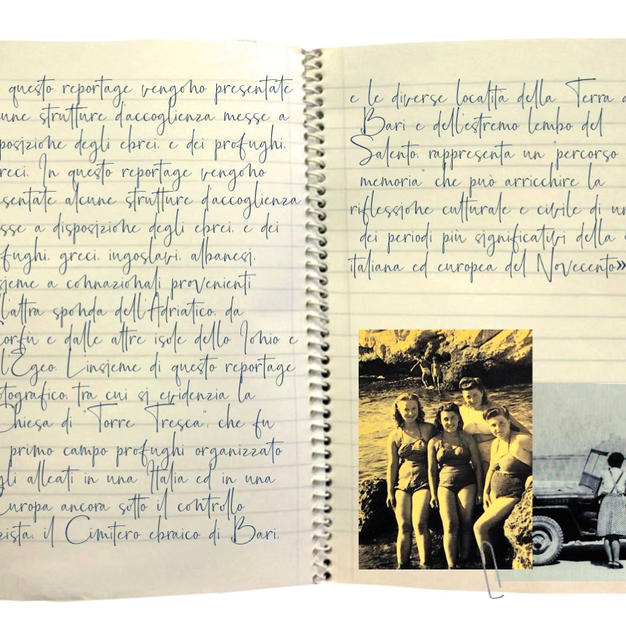 questo reportage vengono presentate
cune strutture d'accoglienza messe a
sposizione degli ebrei, e dei profughi,
reci. In questo reportage vengono
esentate alcune strutture d'accoglienza
sse a disposizione degli ebrei, e dei
fughi, greci, iugoslavi, albanesi,
sieme a connazionali provenienti
ll'altra sponda dell'Adriatico, da
orfù e dalle altre isole dello Ionio e
l'Egeo. L'insieme di questo reportage
otografico, tra cui si evidenzia la
Chiesa di "Torre Tresca", che fu
primo campo profughi organizzato
gli alleati in una Italia ed in una
Europa ancora sotto il controllo
zista, il Cimitero ebraico di Bari,
e le diverse località della Terra d
Bari e dell'estremo lembo del
Salento, rappresenta un "percorso
memoria" che può arricchire la
riflessione culturale e civile di un
dei periodi più significativi della
italiana ed europea del Novecento»